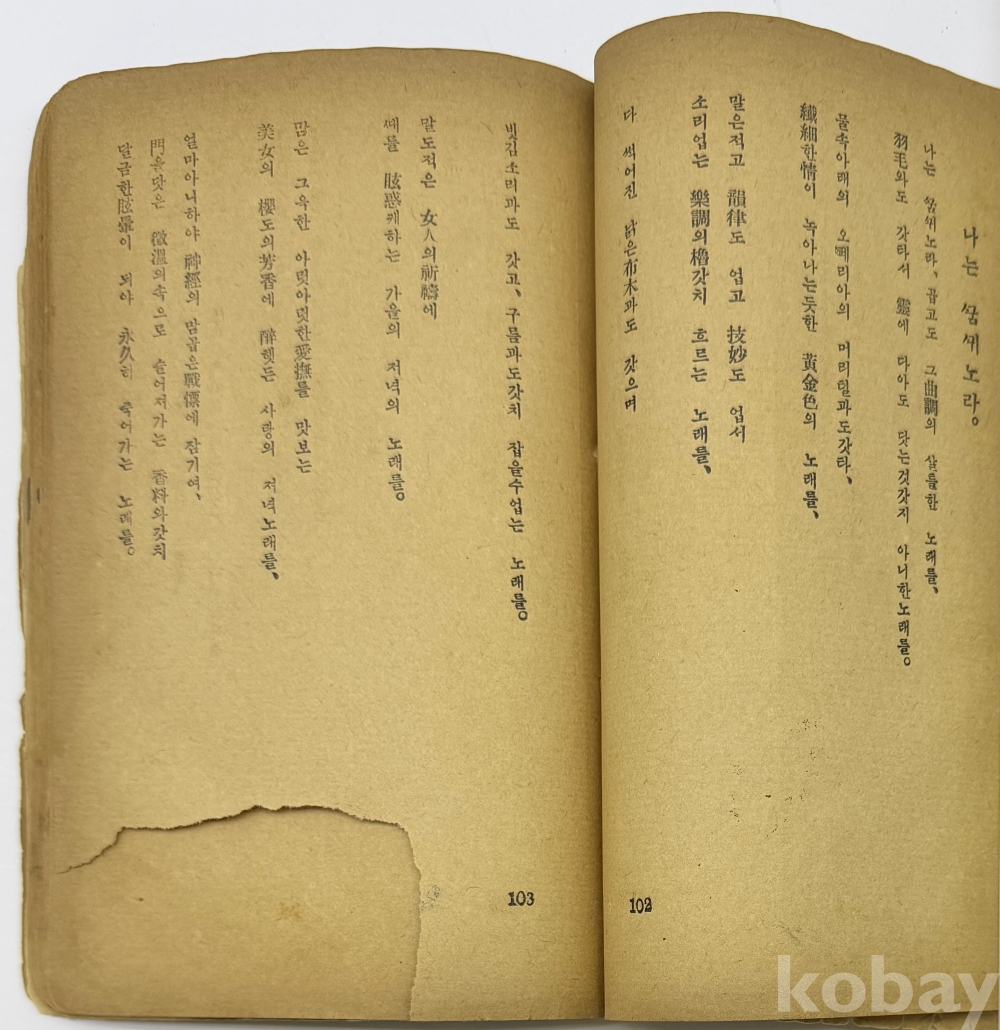 나는 ᄭᅮᆷᄭᅮ노라。
나는 ᄭᅮᆷᄭᅮ노라、곱고도 그曲調의 살틀한 노래를、
羽毛와도 갓타서 靈에 다아도 닷는것갓지 아니한노래를。
물속아래의 오ᅋᅦ리아의 머리털과도갓타、
纖細한情이 녹아나는듯한 黃金色의 노래를、
말은적고 韻律도 업고 技妙도 업서
소리업는 樂調의櫓갓치 흐르는 노래를、
다 썩어진 낡은布木과도 갓으며
102
빗김소리과도 갓고、구름과도갓치 잡을수업는 노래를。
말도적은 女人의祈禱에
ᄯᅢ를 眩惑케하는 가을의 저녁의 노래를。
맘은 그윽한 아릿아릿한愛撫를 맛보는
美女의 櫻도의芳香에 醉햇든 사랑의 저녁노래를、
얼마아니하야 神經의 맘곱은戰慄에 잠기여、
門을닷은 微溫의속으로 슬어져가는 香料와갓치
달금한眩暈이 되야 永久히 죽어가는 노래를。
103
kobay